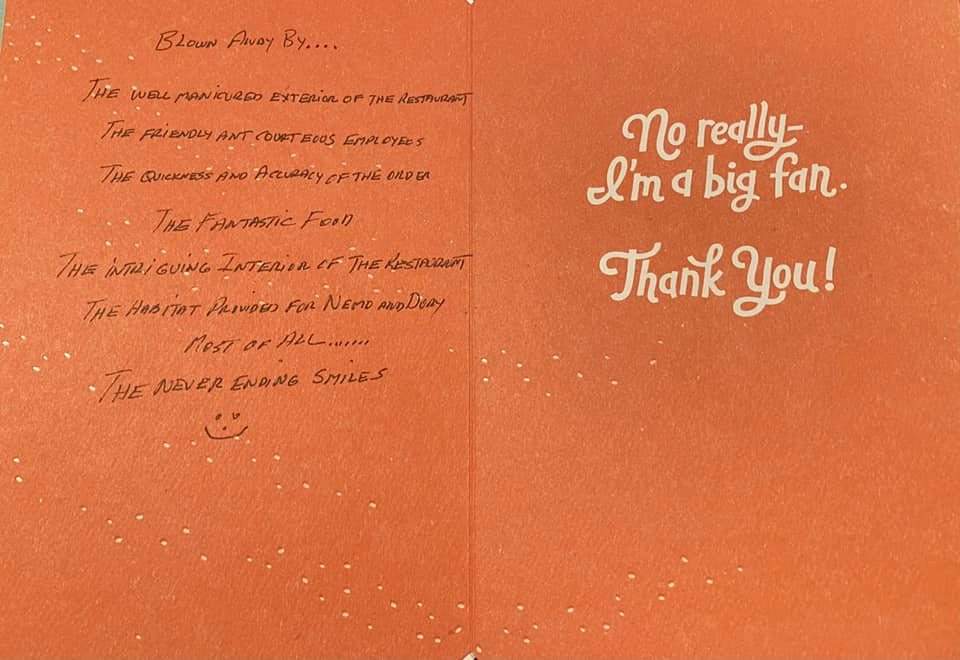 Blown Away By....
The well manicured exterior of the restaurant
The friendly ant courteous employees
The quickness and accuracy of the order
The Fantastic Food
The intriguing Interior of the Restaurant
The Habitat Provided for Nemo and Dory
Most of All.......
The never ending Smiles
No really–
I'm a big fan.
Thank You!